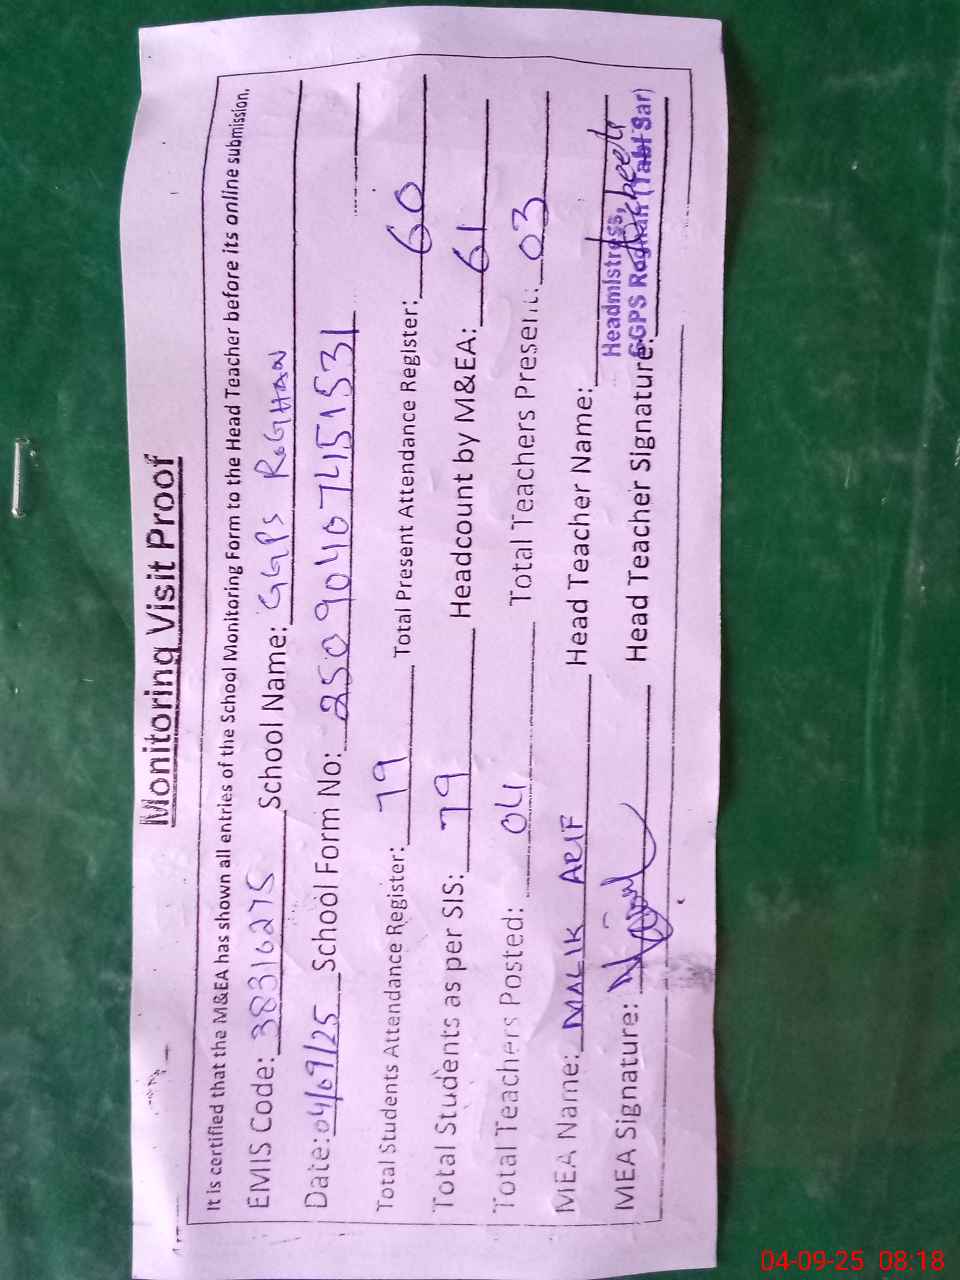 Monitoring Visit Proof
It is certified that the M&EA has shown all entries of the School Monitoring Form to the Head Teacher before its online submission.
EMIS Code: 38316275 School Name: GGPS ROGHAN
Date: 04/09/25 School Form No: 250904074151531
Total Students Attendance Register: 79 Total Present Attendance Register: 60
Total Students as per SIS: 79 Headcount by M&EA: 61
Total Teachers Posted: 04 Total Teachers Present: 03
MEA Name: MALIK ARIF Head Teacher Name:
Headmistress,
GGPS Roghan (Tabi Sar)
MEA Signature: Head Teacher Signature:
04-09-25 08:18